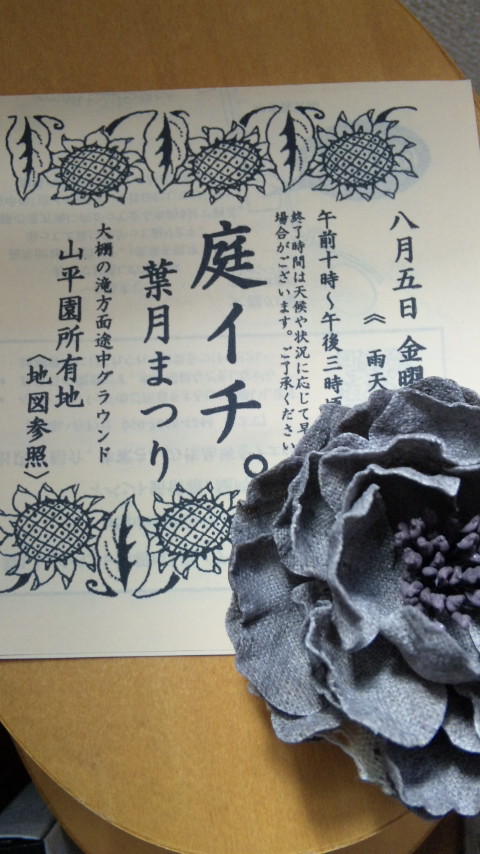 八月五日 金曜
《 雨天
午前十時～午後三時頃
終了時間は天候や状況に応じて早
場合がございます。ご了承ください
庭イチ。
葉月まつり
大棚の滝方面途中グラウンド
山平園所有地
〈地図参照〉